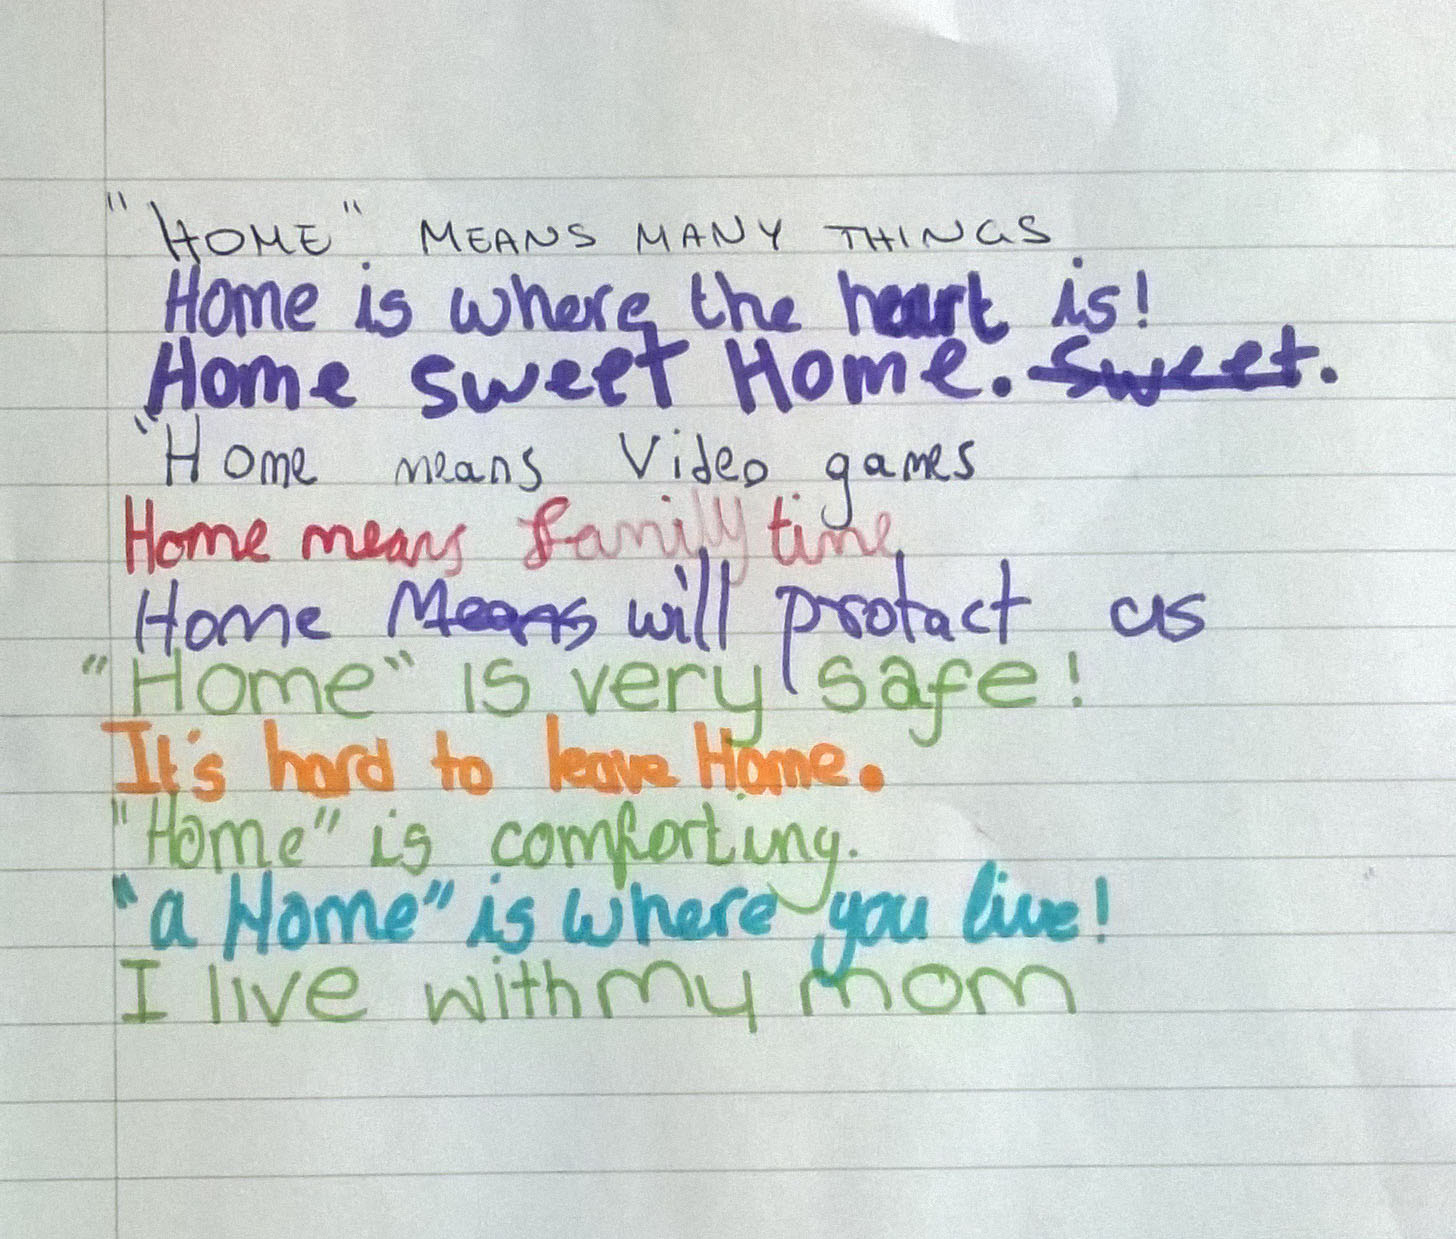 "HOME" MEANS MANY THINGS
Home is where the heart is!
Home sweet Home. sweet.
"Home means Video games
Home means family time
Home Means will protact us
"Home" is very safe!
It's hard to leave Home.
"Home" is comforting.
"a Home" is where you live!
I live with my mom